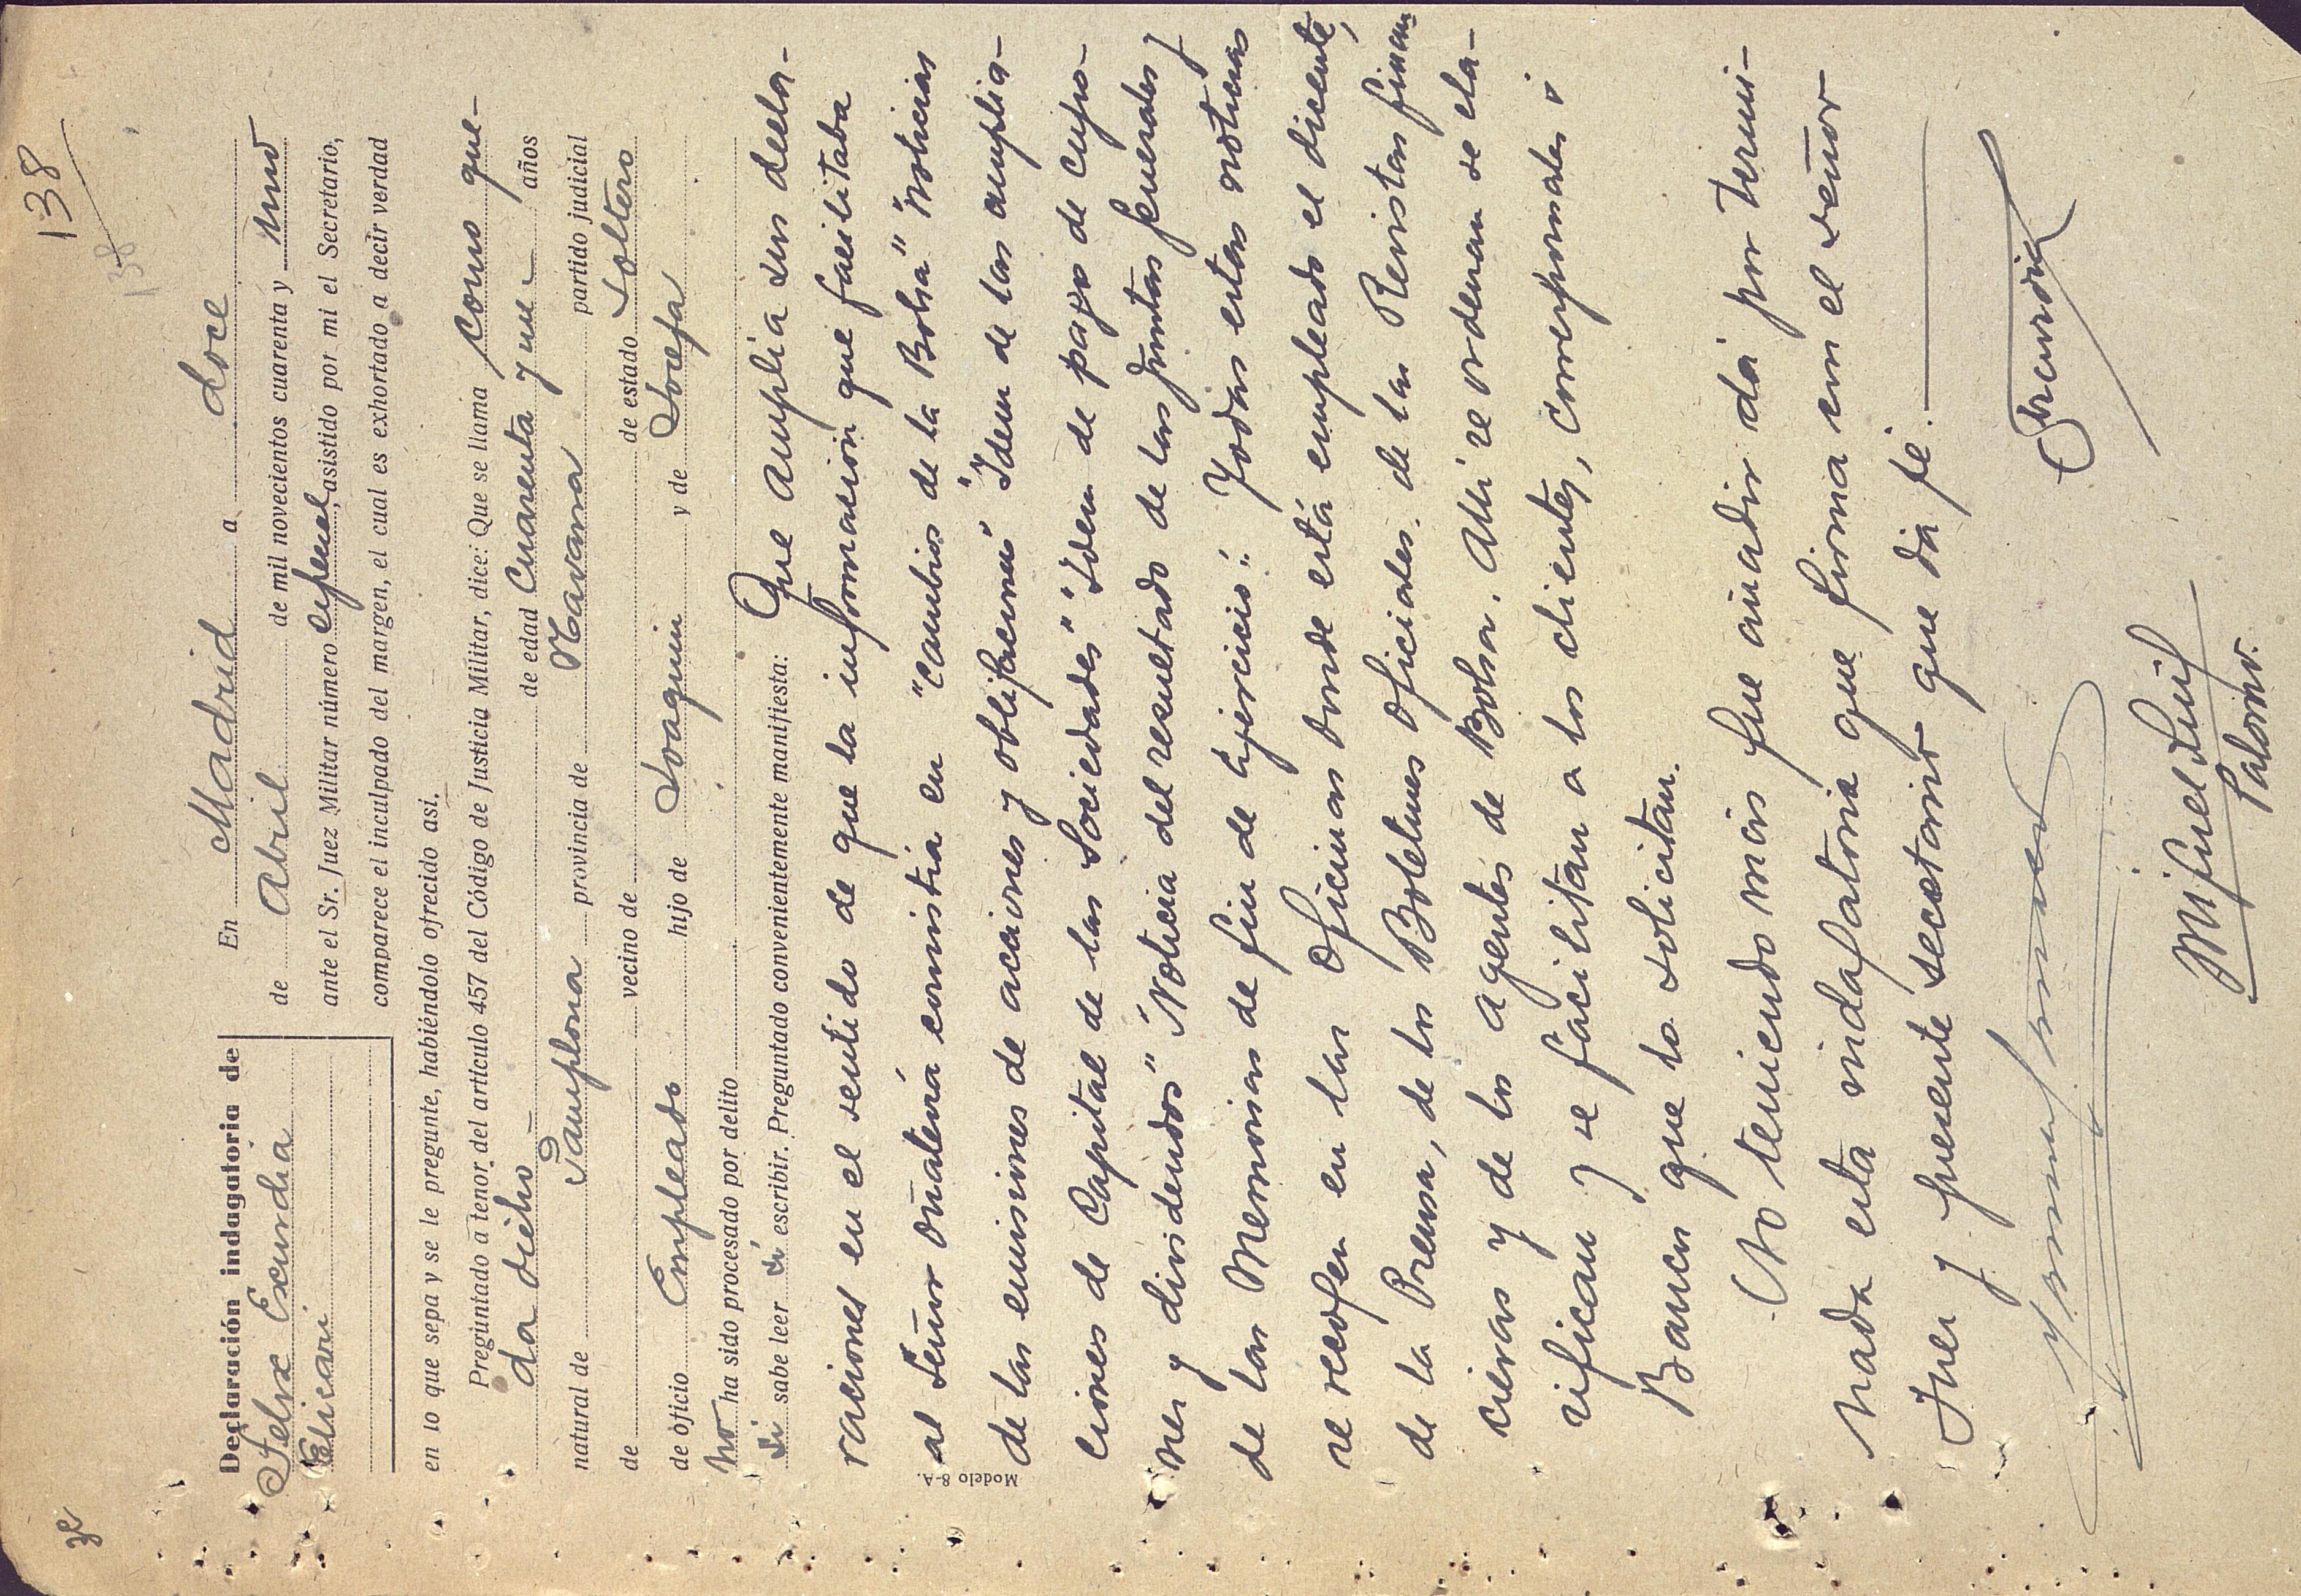 38
138
138
Declaración indagatoria de
Felix Escurdia
Elicari
En Madrid a doce
de Abril de mil novecientos cuarenta y uno
ante el Sr. Juez Militar número especial, asistido por mi el Secretario,
comparece el inculpado del margen, el cual es exhortado a decir verdad
en lo que sepa y se le pregunte, habiéndolo ofrecido asi.
Preguntado a tenor del artículo 457 del Código de Justicia Militar, dice: Que se llama como que-
da dicho de edad Cuarenta y un años
natural de Pamplona provincia de Navarra partido judicial
de vecino de de estado Soltero
de oficio Empleado hijo de Joaquin y de Josefa
no ha sido procesado por delito
Si sabe leer si escribir. Preguntado convenientemente manifiesta: Que amplia sus decla-
raciones en el sentido de que la información que facilitaba
al Señor Oñatería consistia en "cambios de la Bolsa" "noticias
de las emisiones de acciones y obligaciones" "Idem de las amplia-
ciones de Capital de las Sociedades" "Idem de pago de cupo-
nes y dividendos" "Noticia del resultado de las Juntas generales y
de las Memorias de fin de ejercicio". Todas estas noticias
se recogen en las oficinas donde está empleado el dicente,
de la Prensa, de los Boletines Oficiales, de las Revistas finan
cieras y de los agentes de Bolsa. Alli se ordenan se cla-
sifican y se facilitan a los clientes, corresponsales ó
Bancos que lo solicitan.
No teniendo mas que añadir dá por termi-
nada esta indagatoria que firma con el señor
Juez y presente secretario que dá fé.
Escurdia
Miguel Luis
Palomo.
Modelo 8-A.